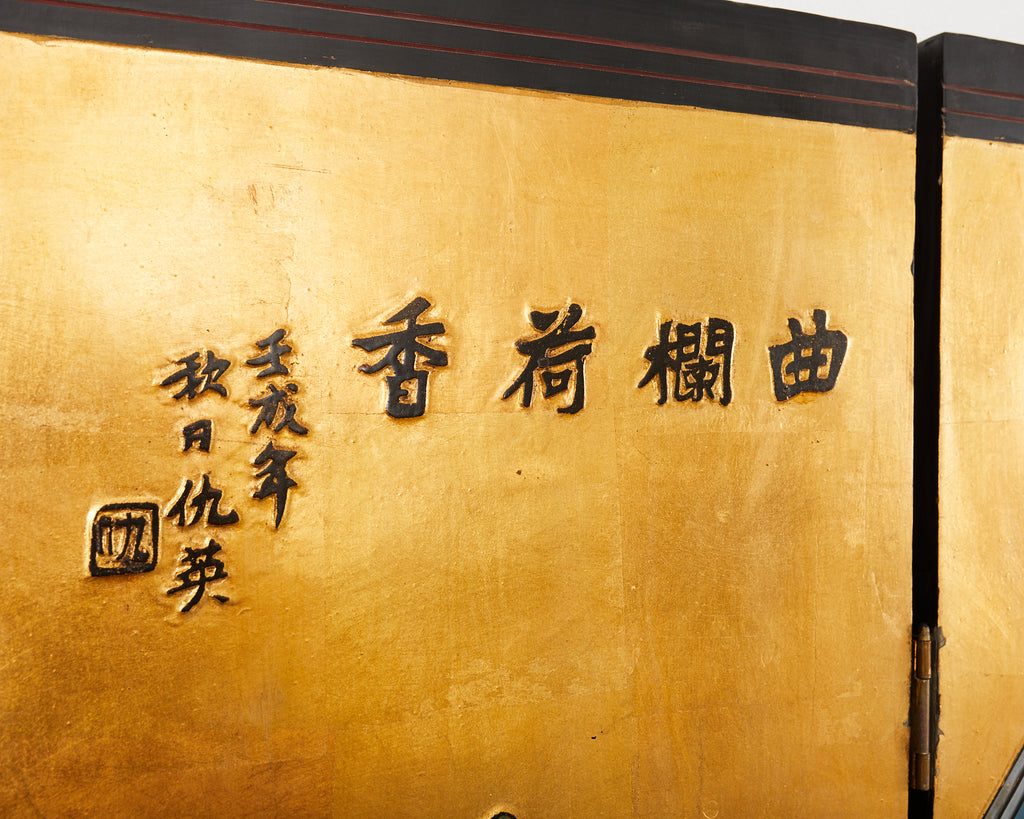 曲欄荷香
壬戌年
秋日仇英
仇